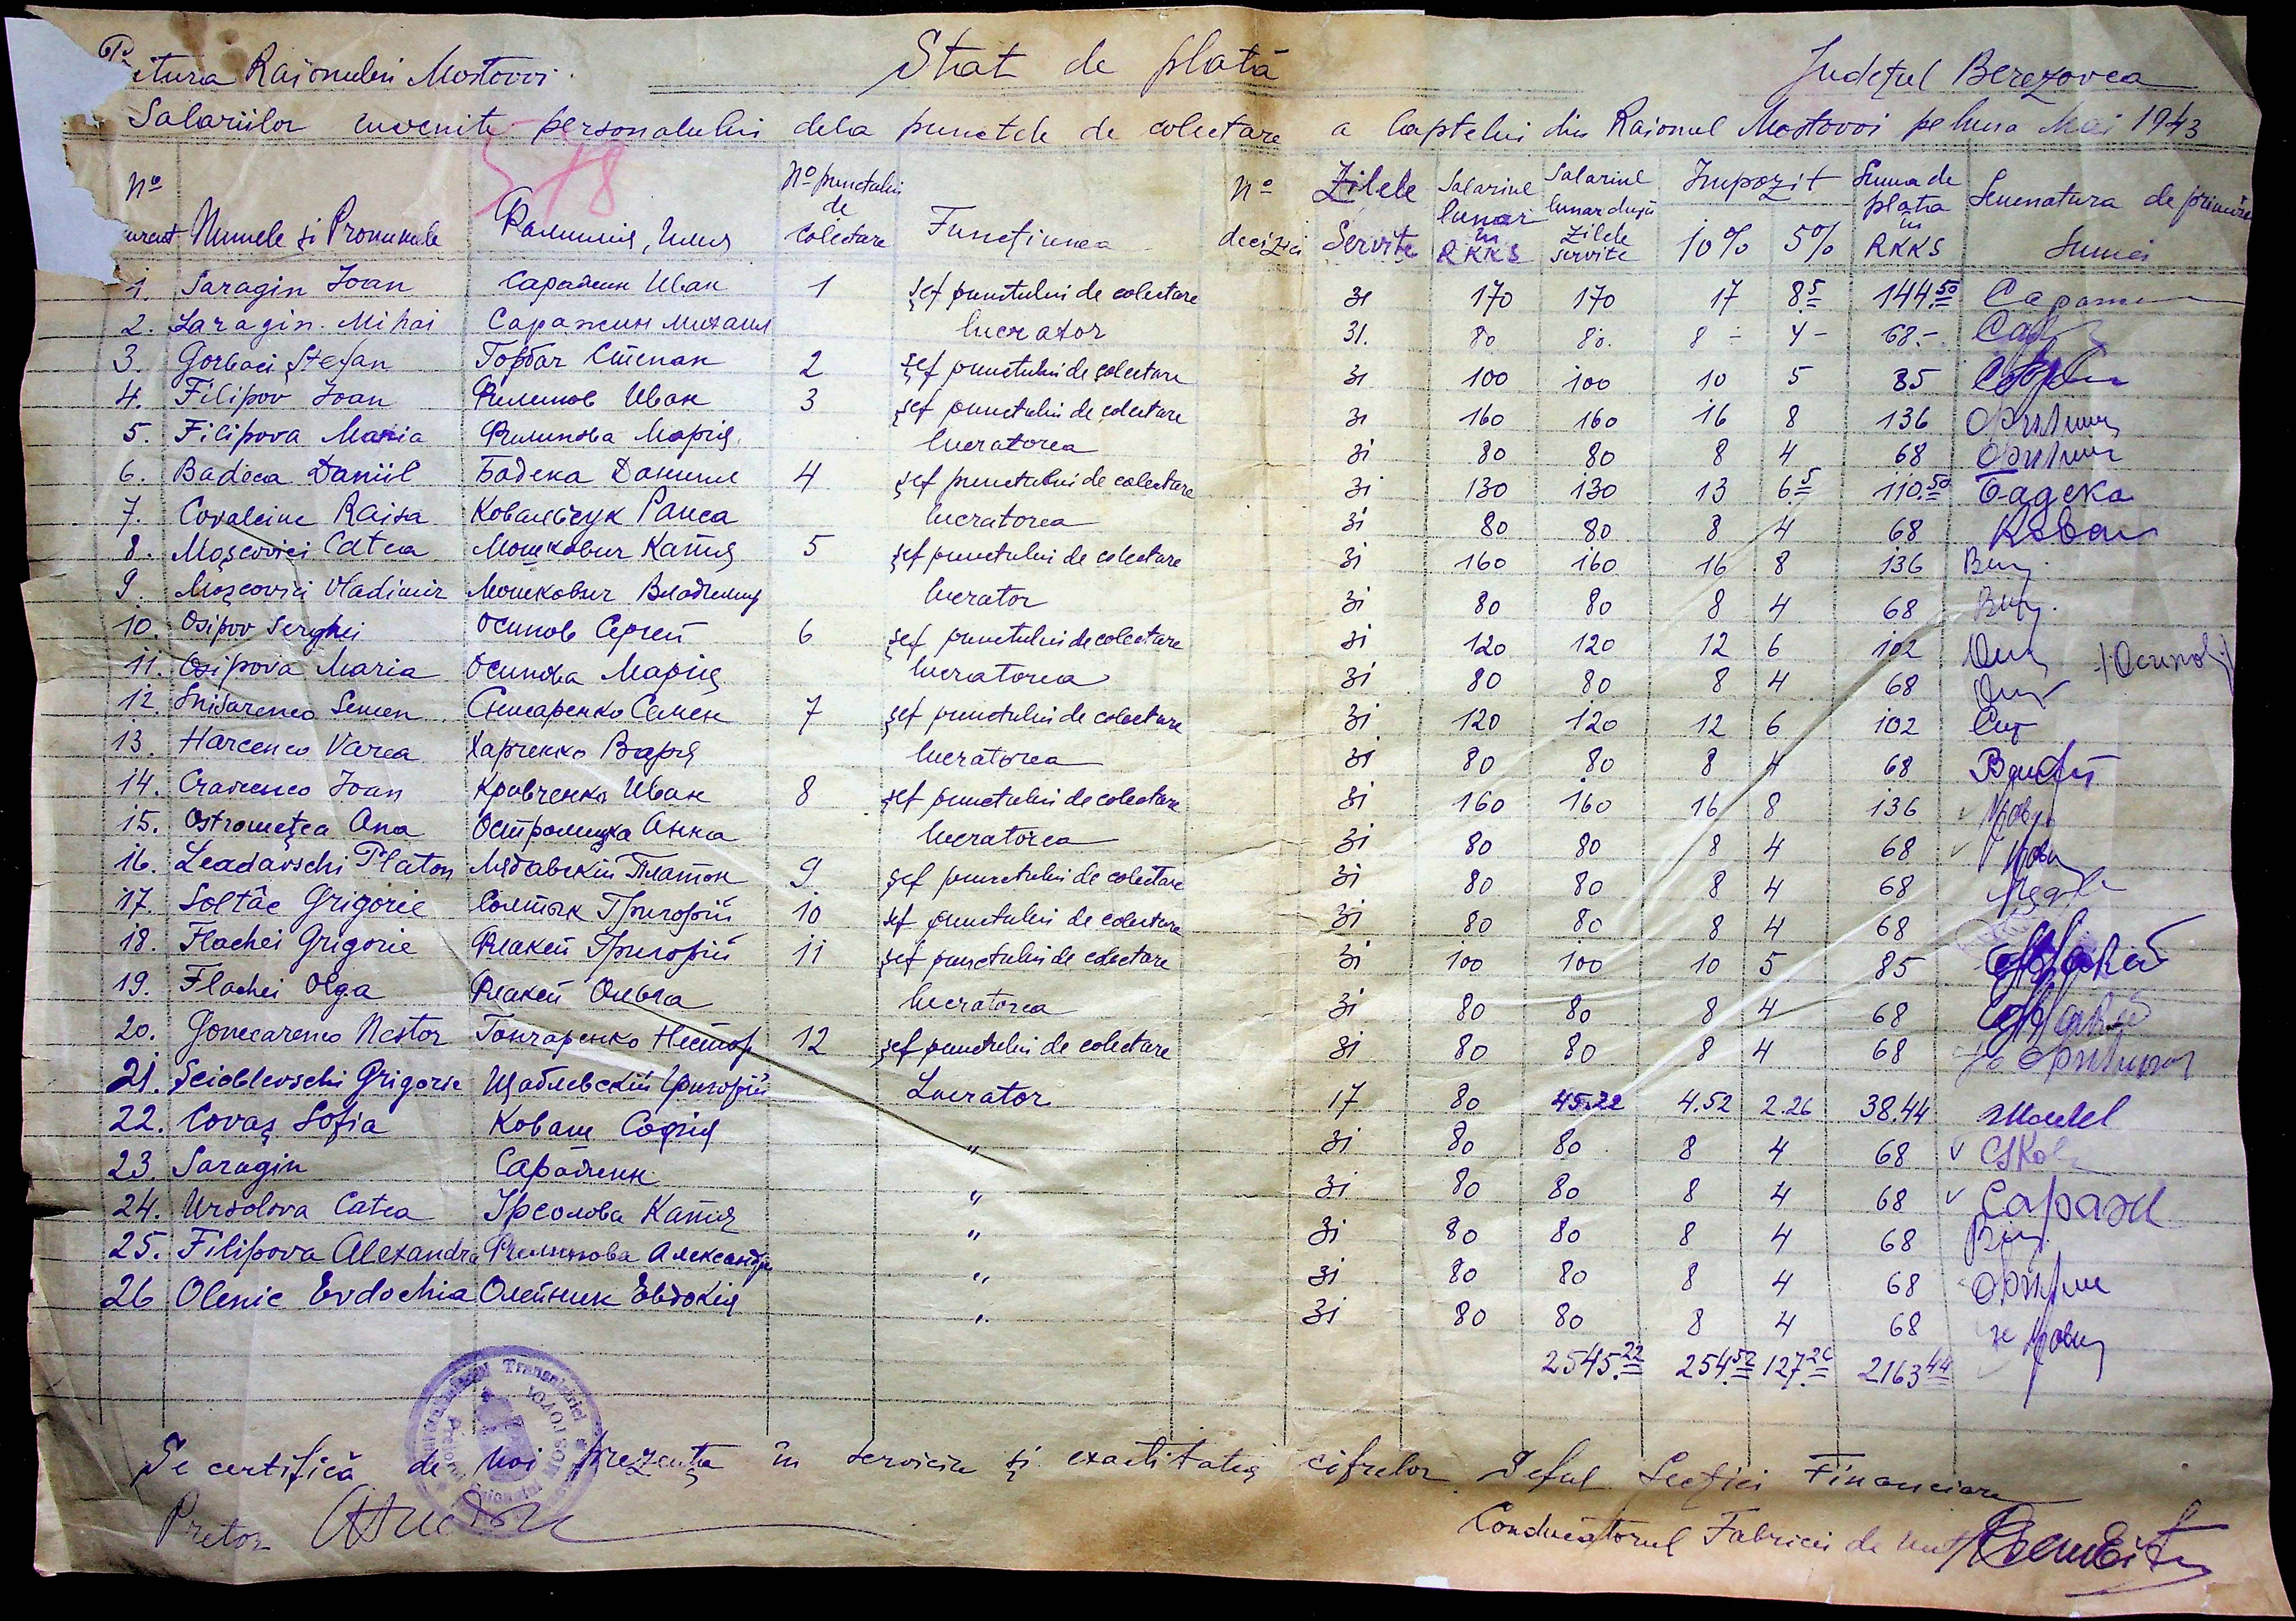 Pretura Raionului Mostovoi Stat de plată Județul Berezovca
Salariilor cuvenite personalului dela punctele de colectare a laptelui din Raionul Mostovoi pe luna Mai 1943
578
Nº curent Numele și Pronumele Фамилия, Имя Nº punctului de Colectare Funcțiunea Nº deciziei Zilele Servite Salariul lunar în RKKS Salariul lunar după zilele servite Impozit 10% 5% Suma de plata în RKKS Semnatura de primirea Sumei
1. Saragin Ioan Сарадѕин Иван 1 șef punctului de colectare 31 170 170 17 8.5 144.50
2. Saragin Mihai Саражин Михаил lucrator 31. 80 80. 8 - 4 - 68.-
3. Gorbaci Ștefan Горбач Степан 2 șef punctului de colectare 31 100 100 10 5 85
4. Filipov Ioan Филипов Иван 3 șef punctului de colectare 31 160 160 16 8 136
5. Filipova Maria Филипова Мария lucratorea 31 80 80 8 4 68
6. Badeca Daniil Бадека Даниил 4 șef punctului de colectare 31 130 130 13 6.5 110.50 Бадека
7. Covalciuc Raisa Ковальчук Раиса lucratorea 31 80 80 8 4 68 Кован
8. Moșcovici Catea Мошкович Катя 5 șef punctului de colectare 31 160 160 16 8 136
9. Moșcovici Vladimir Мошкович Владимир lucrator 31 80 80 8 4 68
10. Osipov Serghei Осипов Сергей 6 șef punctului de colectare 31 120 120 12 6 102 /Осипов/
11. Osipova Maria Осипова Мария lucratorea 31 80 80 8 4 68
12. Snisarenco Semen Снисаренко Семен 7 șef punctului de colectare 31 120 120 12 6 102
13. Harcenco Varea Харченко Варя lucratorea 31 80 80 8 4 68
14. Cravcenco Ioan Кравченко Иван 8 șef punctului de colectare 31 160 160 16 8 136
15. Ostromețca Ana Остромецка Анна lucratorea 31 80 80 8 4 68
16. Leadavschi Platon Лядавский Платон 9. șef punctului de colectare 31 80 80 8 4 68
17. Soltâc Grigorie Солтык Григорій 10 șef punctului de colectare 31 80 80 8 4 68
18. Flachei Grigorie Флакей Григорій 11 șef punctului de colectare 31 100 100 10 5 85
19. Flachei Olga Флакей Ольга lucratorea 31 80 80 8 4 68
20. Goncearenco Nestor Гончаренко Нестор 12 șef punctului de colectare 31 80 80 8 4 68
21. Scioblevschi Grigorie Щаблевский Григорій Lucrator 17 80 45.22 4.52 2.26 38.44
22. Covaș Sofia Коваш София " 31 80 80 8 4 68
23. Saragin Сараджин " 31 80 80 8 4 68 Саражи
24. Ursolova Catea Урсолова Катя " 31 80 80 8 4 68
25. Filipova Alexandra Филипова Александра " 31 80 80 8 4 68
26 Olenic Evdochia Олейник Евдокия " 31 80 80 8 4 68
2545.22 254.52 127.26 2163.44
Guvernământul Transnistriei Pretura Raionului MOSTOVOI
Se certifică de noi prezența în serviciu și exactitatea cifrelor. Șeful Secției Financiare
Pretor Conducătorul Fabricii de unt